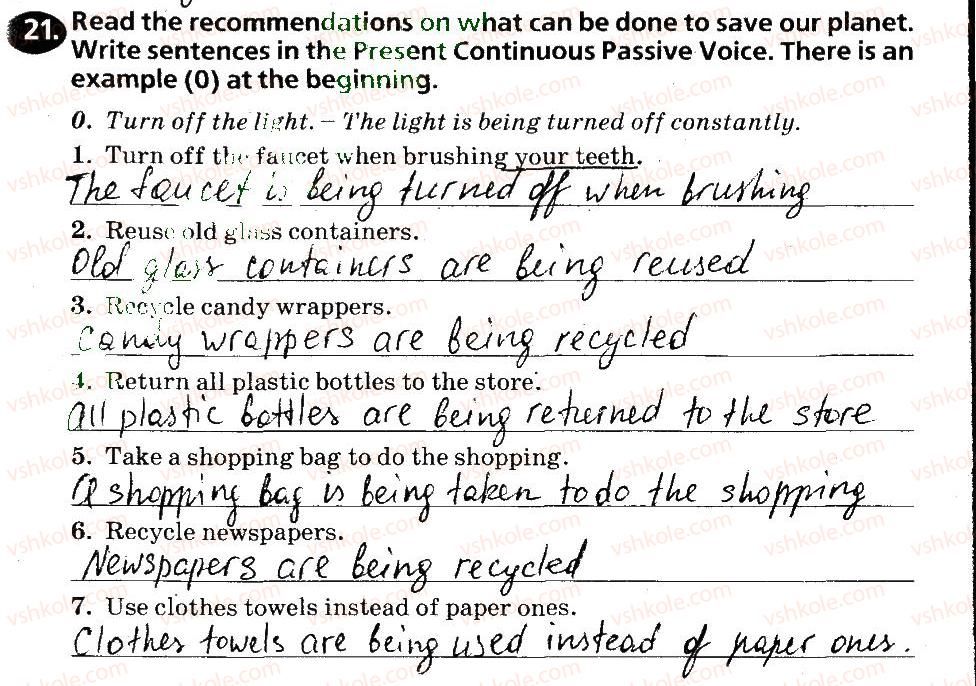 21. Read the recommendations on what can be done to save our planet.
Write sentences in the Present Continuous Passive Voice. There is an
example (0) at the beginning.
0. Turn off the light. – The light is being turned off constantly.
1. Turn off the faucet when brushing your teeth.
The faucet is being turned off when brushing
2. Reuse old glass containers.
Old glass containers are being reused
3. Recycle candy wrappers.
Candy wrappers are being recycled
4. Return all plastic bottles to the store.
All plastic bottles are being returned to the store
5. Take a shopping bag to do the shopping.
A shopping bag is being taken to do the shopping
6. Recycle newspapers.
Newspapers are being recycled
7. Use clothes towels instead of paper ones.
Clothes towels are being used instead of paper ones.
vshkole.com